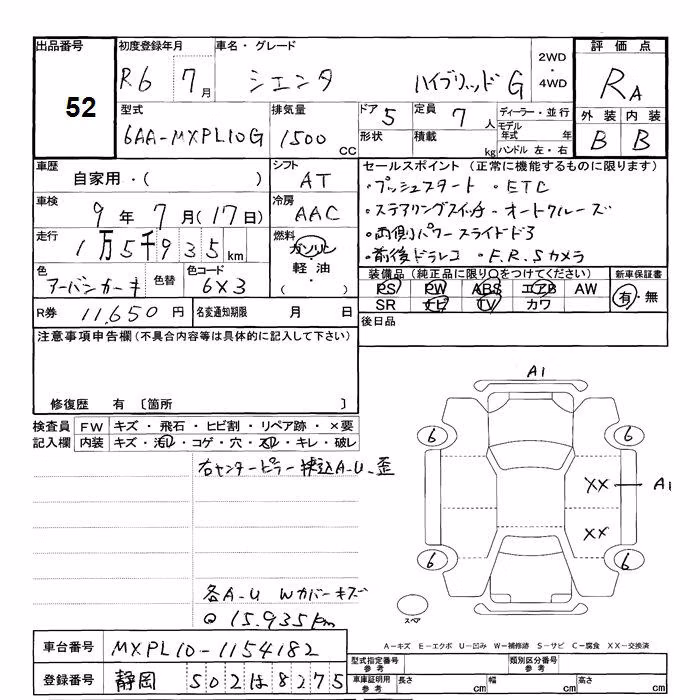 出品番号 初度登録年月 車名・グレード 評価点
52 R6 7月 シエンタ ハイブリッド G 2WD・4WD RA
型式 排気量 ドア 5 定員 7人 ディーラー・並行 外装 内装
6AA-MXPL10G 1500cc 形状 積載 kg モデル年式 年 B B
ハンドル 左・右
車歴 シフト セールスポイント (正常に機能するものに限ります)
自家用・( ) AT ・プッシュスタート ・ETC
車検 冷房 ・ステアリングスイッチ・オートクルーズ
9年7月(17日) AAC ・両側パワースライドドア
走行 燃料 ・前後ドラレコ ・F.R.Sカメラ
1万5千935km ガソリン
軽油
・( )
色 色替 色コード 装備品 (純正品に限り○をつけてください) 新車保証書
アーバンカーキ 6X3 PS PW ABS エアB AW 有・無
SR ナビ TV カワ
R券 11,650円 名変通知期限 月 日 後日品
注意事項申告欄(不具合内容等は具体的に記入して下さい)
修復歴 有 〔箇所 〕
A1
検査員 FW キズ・飛石・ヒビ割・リペア跡・×要
記入欄 内装 キズ・汚レ・コゲ・穴・スレ・キレ・破レ
6 6
右センターピラー 込A-U 歪
XX A1
XX
6 6
各A-U Wカバーキズ
15.935km
スペア
A-キズ E-エクボ U-凹み W-補修跡 S-サビ C-腐食 XX-交換済
車台番号 MXPL10-1154182
型式指定番号 参考 類別区分番号 参考
登録番号 静岡 502は8275
車庫証明用 参考 長さ cm 幅 cm 高さ cm